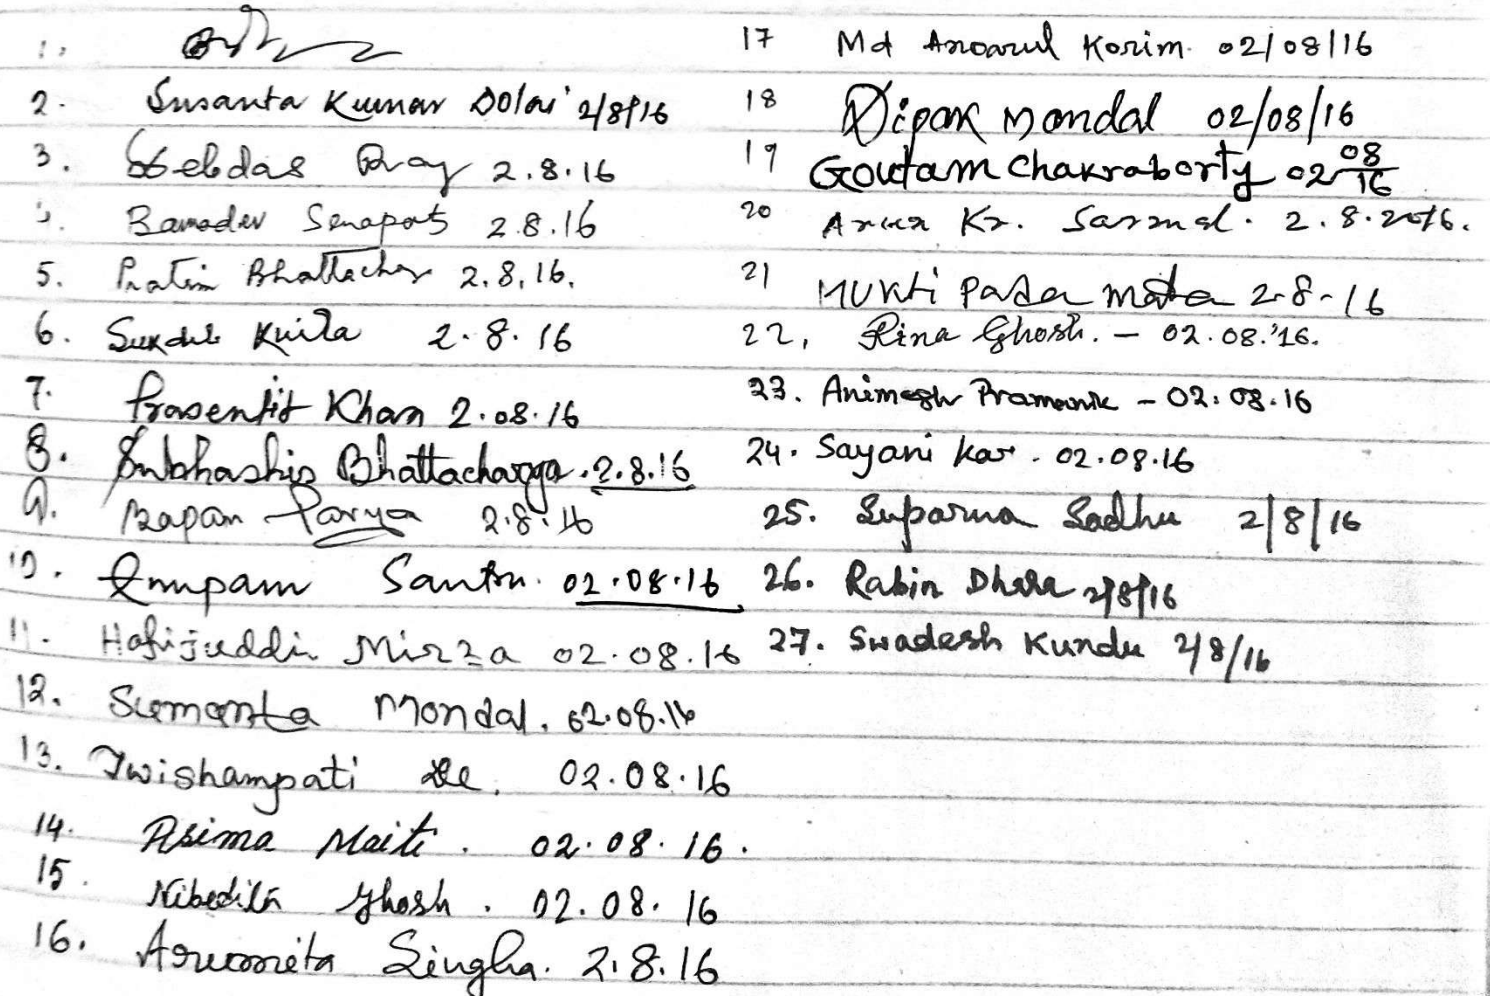 1.
2. Susanta Kumar Dolai 2/8/16
3. Debdas Ray 2.8.16
4. Bamadev Senapati 2.8.16
5. Pratim Bhattachar 2.8.16.
6. Sukdeb Kuila 2.8.16
7. Prasenjit Khan 2.08.16
8. Subhashis Bhattacharyya. 2.8.16
9. Bapan Parya 2.8.16
10. Anupam Santra. 02.08.16
11. Hafijuddin Mirza 02.08.16
12. Sumanta Mondal. 02.08.16
13. Twishampati De. 02.08.16
14. Asima Maiti. 02.08.16.
15. Nibedita Ghosh. 02.08.16
16. Singha. 2.8.16
17 Md Anoarul Korim. 02/08/16
18 Dipak Mondal 02/08/16
19 Goutam Chakraborty 02 08/16
20 Kr. 2.8.2016.
21 Mukti Pada 2-8-16
22, Rina Ghosh. - 02.08.'16.
23. Animesh Pramanik - 02.08.16
24. Sayani Kar. 02.08.16
25. Suparna Sadhu 2/8/16
26. Rabin Dhara 2/8/16
27. Swadesh Kundu 2/8/16